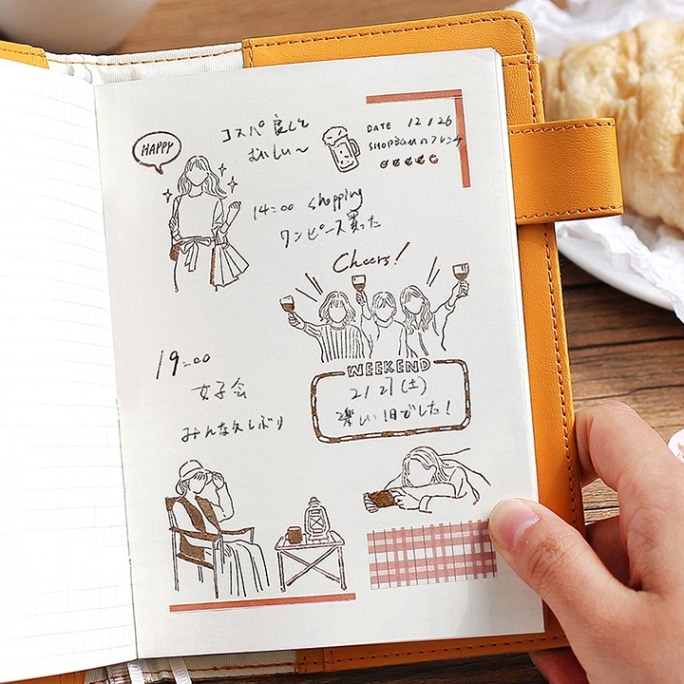 コスパ良しで
おいしい〜
HAPPY
DATE 12/26
SHOP BGMのフレンチ
14:00 shopping
ワンピース買った
Cheers!
WEEKEND
2/27(土)
楽しい1日でした!
19:00
女子会
みんな久しぶり